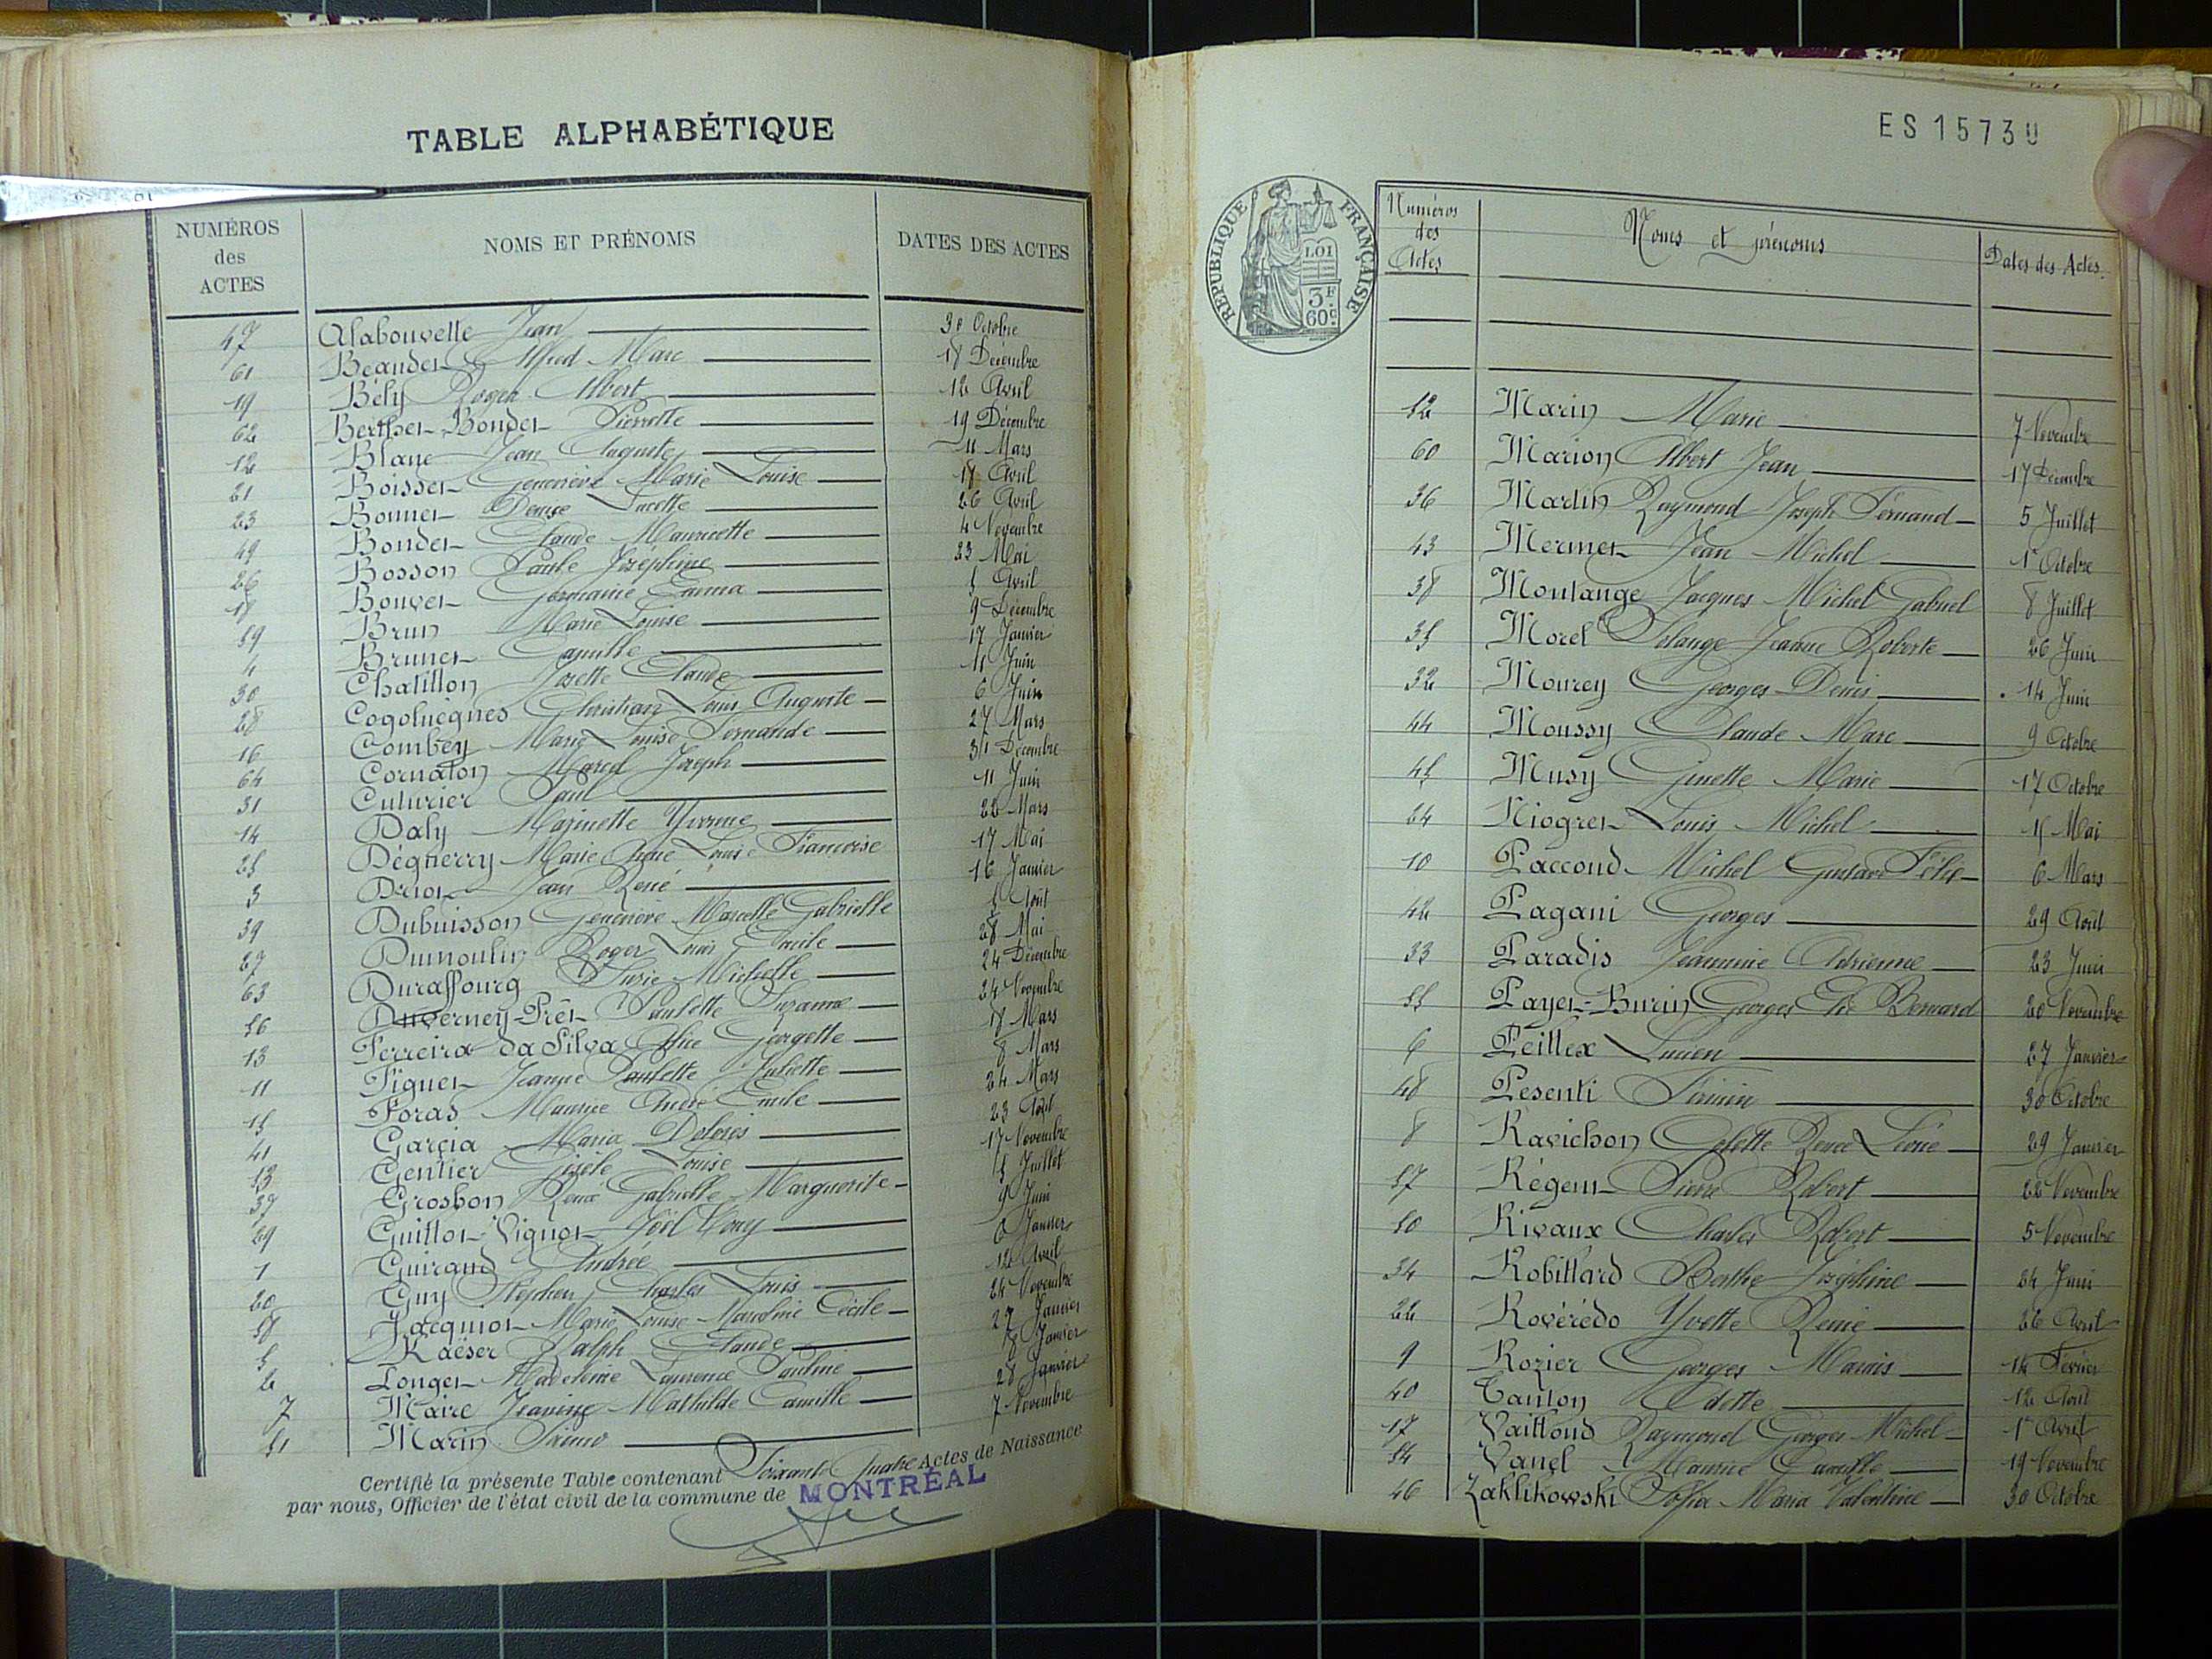 TABLE ALPHABÉTIQUE
NUMÉROS des ACTES NOMS ET PRÉNOMS DATES DES ACTES
47 Alabouvette Jean 30 Octobre
61 Béander Alfred Marc 18 Décembre
19 Bély Roger Albert 12 Avril
62 Berthet-Bondet Pierrette 19 Décembre
12 Blanc Jean Auguste 11 Mars
21 Boisset Geneviève Marie Louise 18 Avril
23 Bonnet Denise Lucette 26 Avril
49 Bondet Claude Mauricette 4 Novembre
26 Bosson Paule Joséphine 23 Mai
18 Bouvet Germaine Emma 5 Avril
59 Brun Marie Louise 9 Décembre
4 Brunet Camille 17 Janvier
30 Chatillon Josette Claude 11 Juin
28 Cogoluègnes Christian Louis Auguste 6 Juin
16 Combey Marie Louise Fernande 27 Mars
64 Cornaton Marcel Joseph 31 Décembre
31 Cuturier Paul 11 Juin
14 Daly Marinette Yvonne 22 Mars
25 Déguerry Marie Anne Louise Françoise 17 Mai
3 Driot Jean René 16 Janvier
39 Dubuisson Geneviève Marcelle Gabrielle 5 Août
27 Dumoulin Roger Louis Emile 28 Mai
63 Duraffourg Susie Michelle 24 Décembre
56 Duverney-Prêt Paulette Suzanne 24 Novembre
13 Ferreira da Silva Alice Georgette 18 Mars
11 Figuet Jeanne Paulette Juliette 8 Mars
15 Foras Maurice André Emile 24 Mars
41 Garçia Maria Dolorès 23 Août
53 Gentier Gisèle Louise 17 Novembre
37 Grosbon Renée Gabrielle Marguerite 5 Juillet
29 Guillot-Vignot Joël Tony 9 Juin
1 Guiraud Andrée 6 Janvier
20 Guy Stéphen Charles Louis 12 Avril
58 Jacquiot Marie Louise Caroline Cécile 24 Novembre
5 Kaéser Ralph Claude 27 Janvier
2 Longet Madeleine Laurence Pauline 8 Janvier
7 Maire Jeanine Mathilde Camille 28 Janvier
51 Marin Primo 7 Novembre
Certifié la présente Table contenant Soixante quatre Actes de Naissance
par nous, Officier de l'état civil de la commune de MONTRÉAL
ES 15730
RÉPUBLIQUE FRANÇAISE
LOI
3F
60c
Numéros des Actes Noms et prénoms Dates des Actes
52 Marin Marie 7 Novembre
60 Marion Albert Jean 17 Décembre
36 Martin Raymond Joseph Fernand 5 Juillet
43 Mermet Jean Michel 1r Octobre
38 Montange Jacques Michel Gabriel 8 Juillet
35 Morel Solange Jeanne Roberte 26 Juin
32 Mourey Georges Denis 14 Juin
44 Moussy Claude Marc 9 Octobre
45 Musy Ginette Marie 17 Octobre
24 Niogret Louis Michel 15 Mai
10 Paccoud Michel Gustave Félix 6 Mars
42 Pagani Georges 29 Août
33 Paradis Jeannine Adrienne 23 Juin
55 Payet-Burin Georges Elie Bernard 20 Novembre
6 Peillex Lucien 27 Janvier
48 Pesenti Firmin 30 Octobre
8 Ravichon Colette Renée Léonie 29 Janvier
57 Régent Pierre Robert 22 Novembre
50 Rivaux Charles Robert 5 Novembre
34 Robillard Berthe Joséphine 24 Juin
22 Rovérédo Yvette Renée 26 Avril
9 Rozier Georges Marius 14 Février
40 Tanton Odette 12 Août
17 Vailloud Raymond Georges Michel 1r Avril
54 Vanel Maurice Camille 19 Novembre
46 Zaklikowski Sofia Maria Valentine 30 Octobre